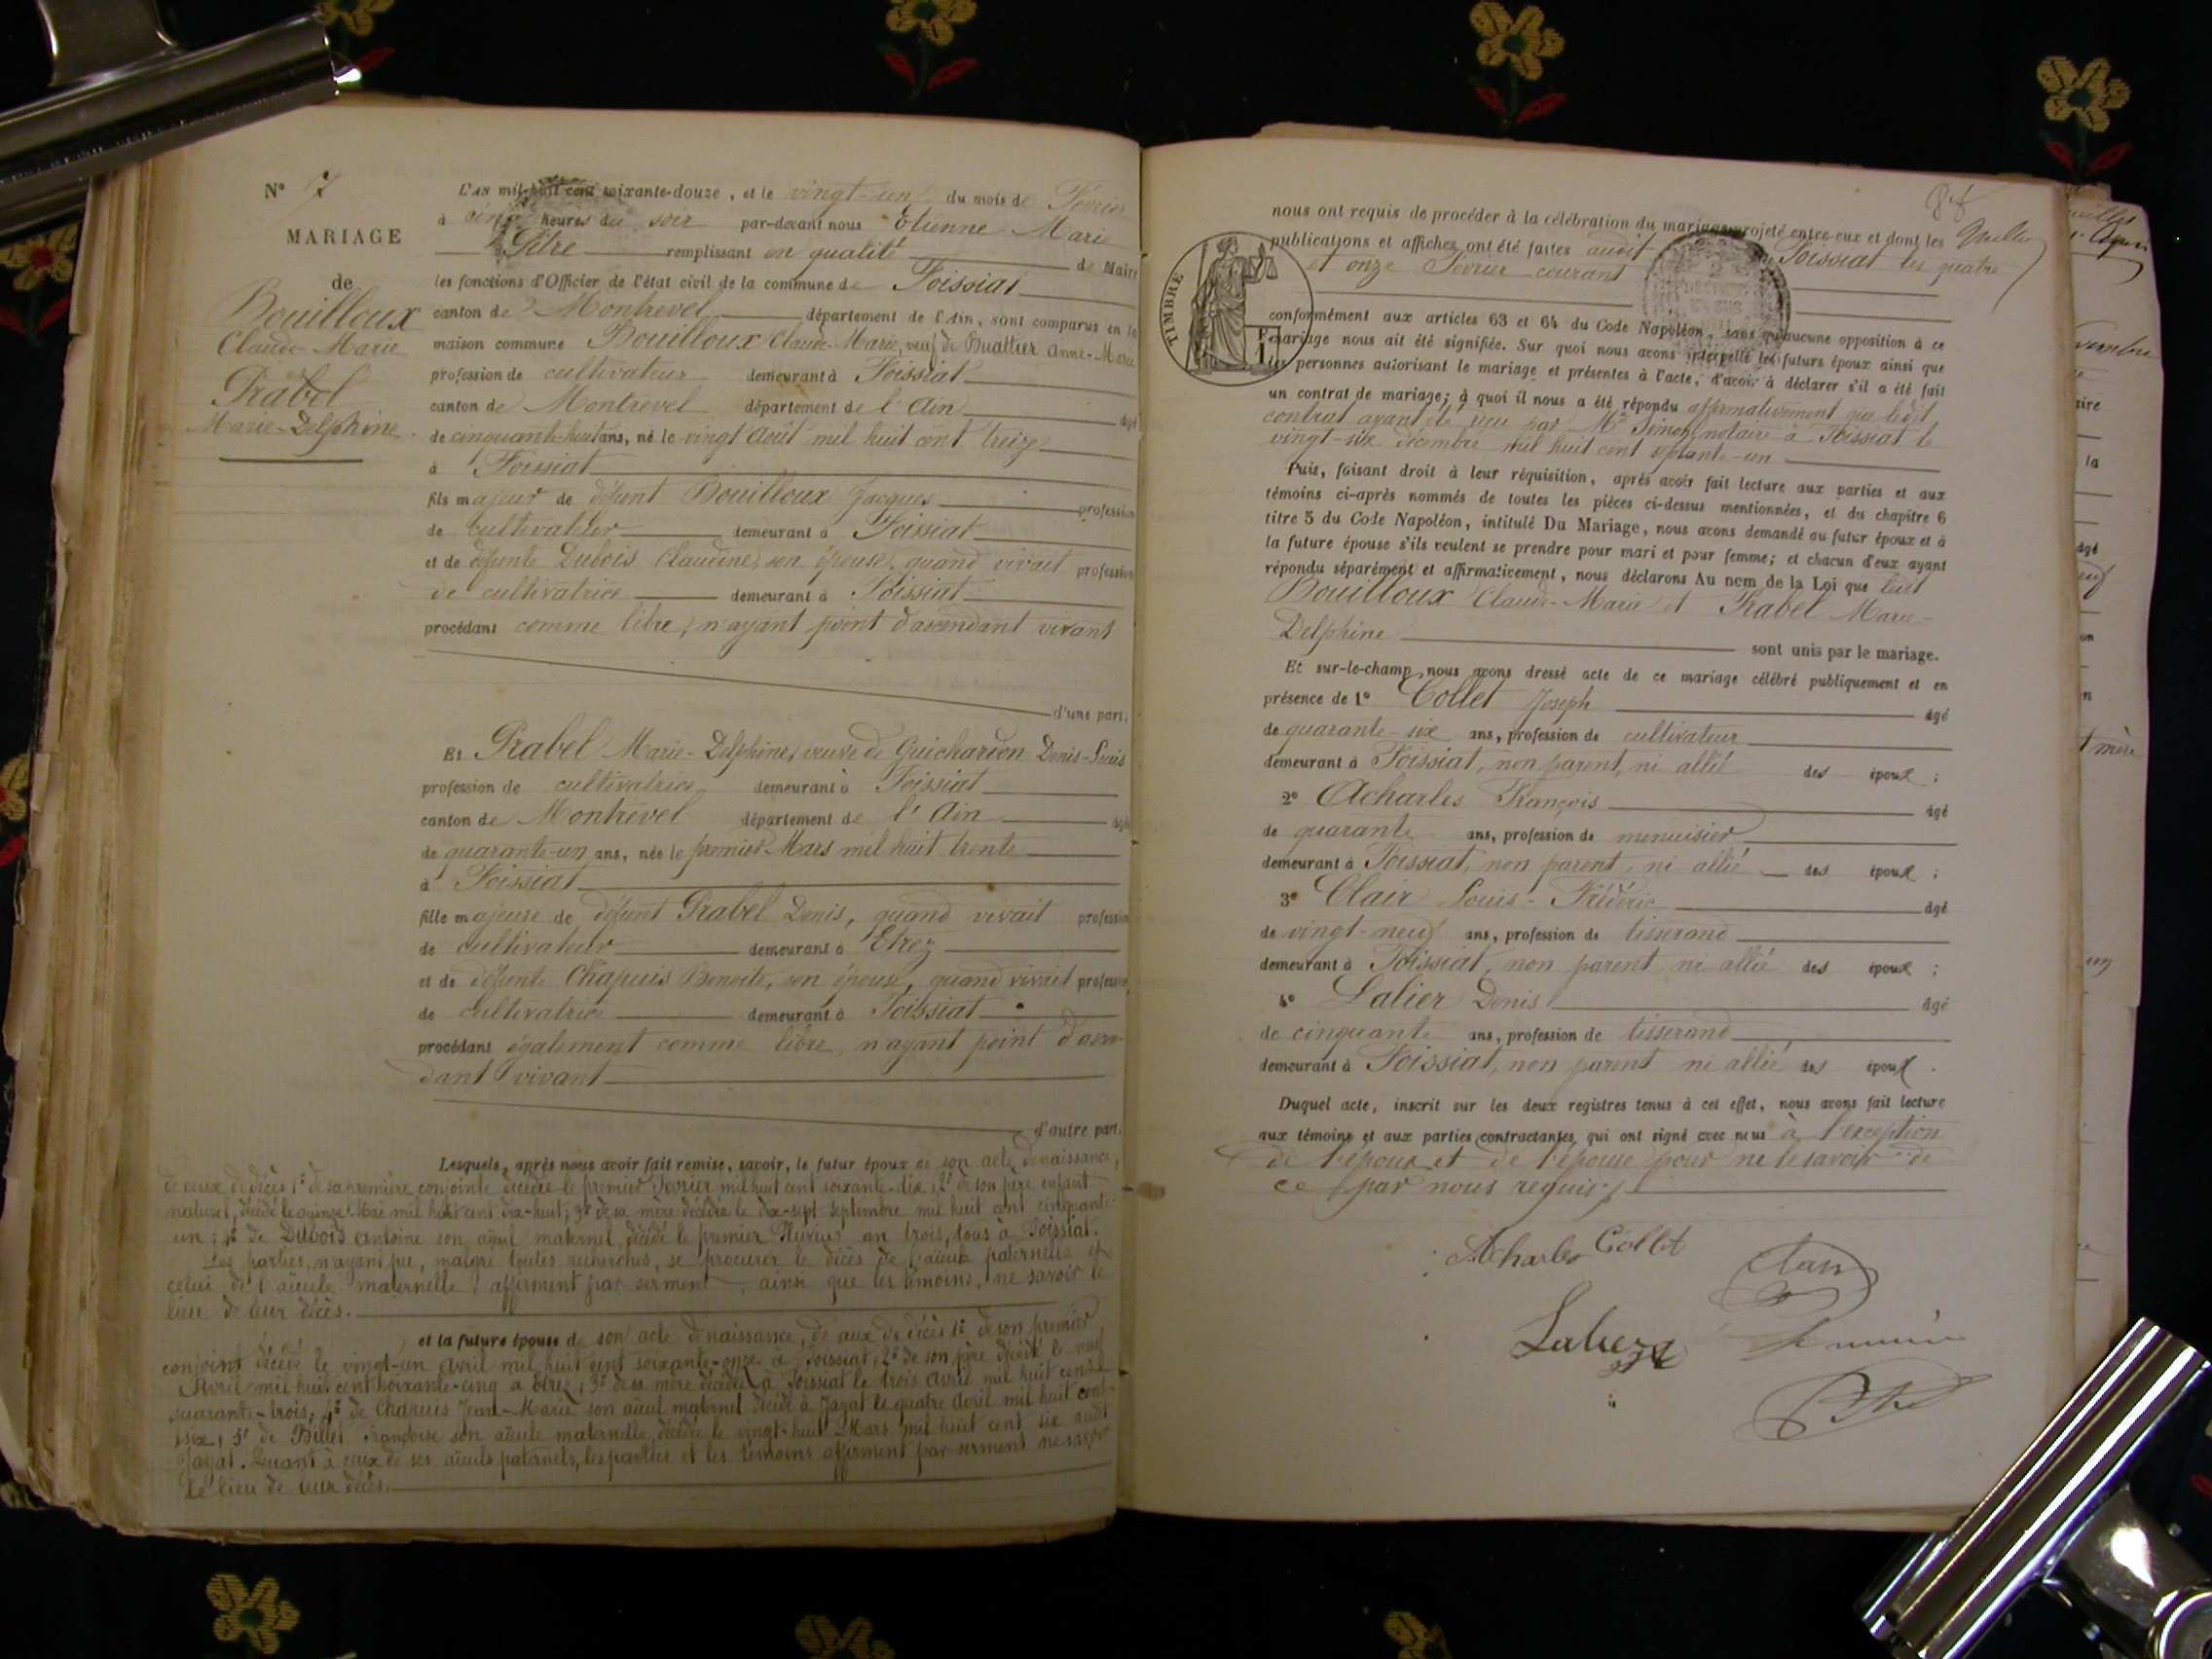 N° 7
MARIAGE
de
Bouilloux
Claude-Marie
et
Prabel
Marie-Delphine
L'AN mil huit cent soixante-douze, et le vingt-un du mois de Février
à cinq heures du soir par-devant nous Etienne Marie
Pitre remplissant en qualité de Maire
les fonctions d'Officier de l'état civil de la commune de Foissiat
canton de Montrevel département de l'Ain, sont comparus en la
maison commune Bouilloux Claude-Marie, veuf de Buattier Anne-Marie
profession de cultivateur demeurant à Foissiat
canton de Montrevel département de l'Ain âgé
de cinquante-huit ans, né le vingt Août mil huit cent treize
à Foissiat
fils majeur de défunt Bouilloux Jacques profession
de cultivateur demeurant à Foissiat
et de défunte Dubois Claudine, son épouse, quand vivait profession
de cultivatrice demeurant à Foissiat
procédant comme libre, n'ayant point d'ascendant vivant
d'une part.
Et Prabel Marie-Delphine, veuve de Guichardon Denis-Louis
profession de cultivatrice demeurant à Foissiat
canton de Montrevel département de l'Ain âgée
de quarante-un ans, née le premier Mars mil huit trente
à Foissiat
fille majeure de défunt Prabel Denis, quand vivait profession
de cultivateur demeurant à Etrez
et de défunte Chapuis Benoite, son épouse, quand vivait profession
de cultivatrice demeurant à Foissiat
procédant également comme libre, n'ayant point d'ascen-
dant vivant
d'autre part.
Lesquels, après nous avoir fait remise, savoir, le futur époux de son acte de naissance,
de ceux de décès 1° de sa première conjointe décédée le premier Février mil huit cent soixante-dix; 2° de son père enfant
naturel, décédé le quinze Mai mil huit cent dix-huit; 3° de sa mère décédée le dix-sept septembre mil huit cent cinquante
un; 4° de Dubois Antoine son aïeul maternel, décédé le premier Pluviose an trois, tous à Foissiat.
Les parties n'ayant pu, malgré toutes recherches, se procurer le décès de l'aïeule paternelle et
celui de l'aïeule maternelle affirment par serment, ainsi que les témoins, ne savoir le
lieu de leur décès.
et la future épouse de son acte de naissance, de ceux de décès 1° de son premier
conjoint décédé le vingt-un Avril mil huit cent soixante-onze à Foissiat; 2° de son père décédé le neuf
Avril mil huit cent soixante-cinq à Etrez; 3° de sa mère décédée à Foissiat le trois Avril mil huit cent
quarante-trois; 4° de Chapuis Jean-Marie son aïeul maternel décédé à Jayat le quatre Avril mil huit cent
six; 5° de Billet Françoise son aïeule maternelle, décédée le vingt-huit Mars mil huit cent six audit
Jayat. Quant à ceux de ses aïeuls paternels, les parties et les témoins affirment par serment ne savoir
le lieu de leur décès.
nous ont requis de procéder à la célébration du mariage projeté entre eux et dont les
publications et affiches ont été faites audit Foissiat les quatre
et onze Février courant
TIMBRE
conformément aux articles 63 et 64 du Code Napoléon, sans qu'aucune opposition à ce
mariage nous ait été signifiée. Sur quoi nous avons interpellé les futurs époux ainsi que
les personnes autorisant le mariage et présentes à l'acte, d'avoir à déclarer s'il a été fait
un contrat de mariage; à quoi il nous a été répondu affirmativement que ledit
contrat ayant été reçu par Me Simon, notaire à Foissiat le
vingt-six décembre mil huit cent septante-un
Puis, faisant droit à leur réquisition, après avoir fait lecture aux parties et aux
témoins ci-après nommés de toutes les pièces ci-dessus mentionnées, et du chapitre 6
titre 5 du Code Napoléon, intitulé Du Mariage, nous avons demandé au futur époux et à
la future épouse s'ils veulent se prendre pour mari et pour femme; et chacun d'eux ayant
répondu séparément et affirmativement, nous déclarons Au nom de la Loi que ledit
Bouilloux Claude-Marie et Prabel Marie-
Delphine sont unis par le mariage.
Et sur-le-champ nous avons dressé acte de ce mariage célébré publiquement et en
présence de 1° Collet Joseph âgé
de quarante-six ans, profession de cultivateur
demeurant à Foissiat, non parent, ni allié des époux;
2° Acharles François âgé
de quarante ans, profession de menuisier
demeurant à Foissiat, non parent, ni allié des époux;
3° Clair Louis-Frédéric âgé
de vingt-neuf ans, profession de tisserand
demeurant à Foissiat, non parent ni allié des époux;
4° Lalier Denis âgé
de cinquante ans, profession de tisserand
demeurant à Foissiat, non parent ni allié des époux.
Duquel acte, inscrit sur les deux registres tenus à cet effet, nous avons fait lecture
aux témoins et aux parties contractantes qui ont signé avec nous à l'exception
de l'époux et de l'épouse pour ne le savoir de
ce par nous requis.
Acharles Collet
Clair
Lalier